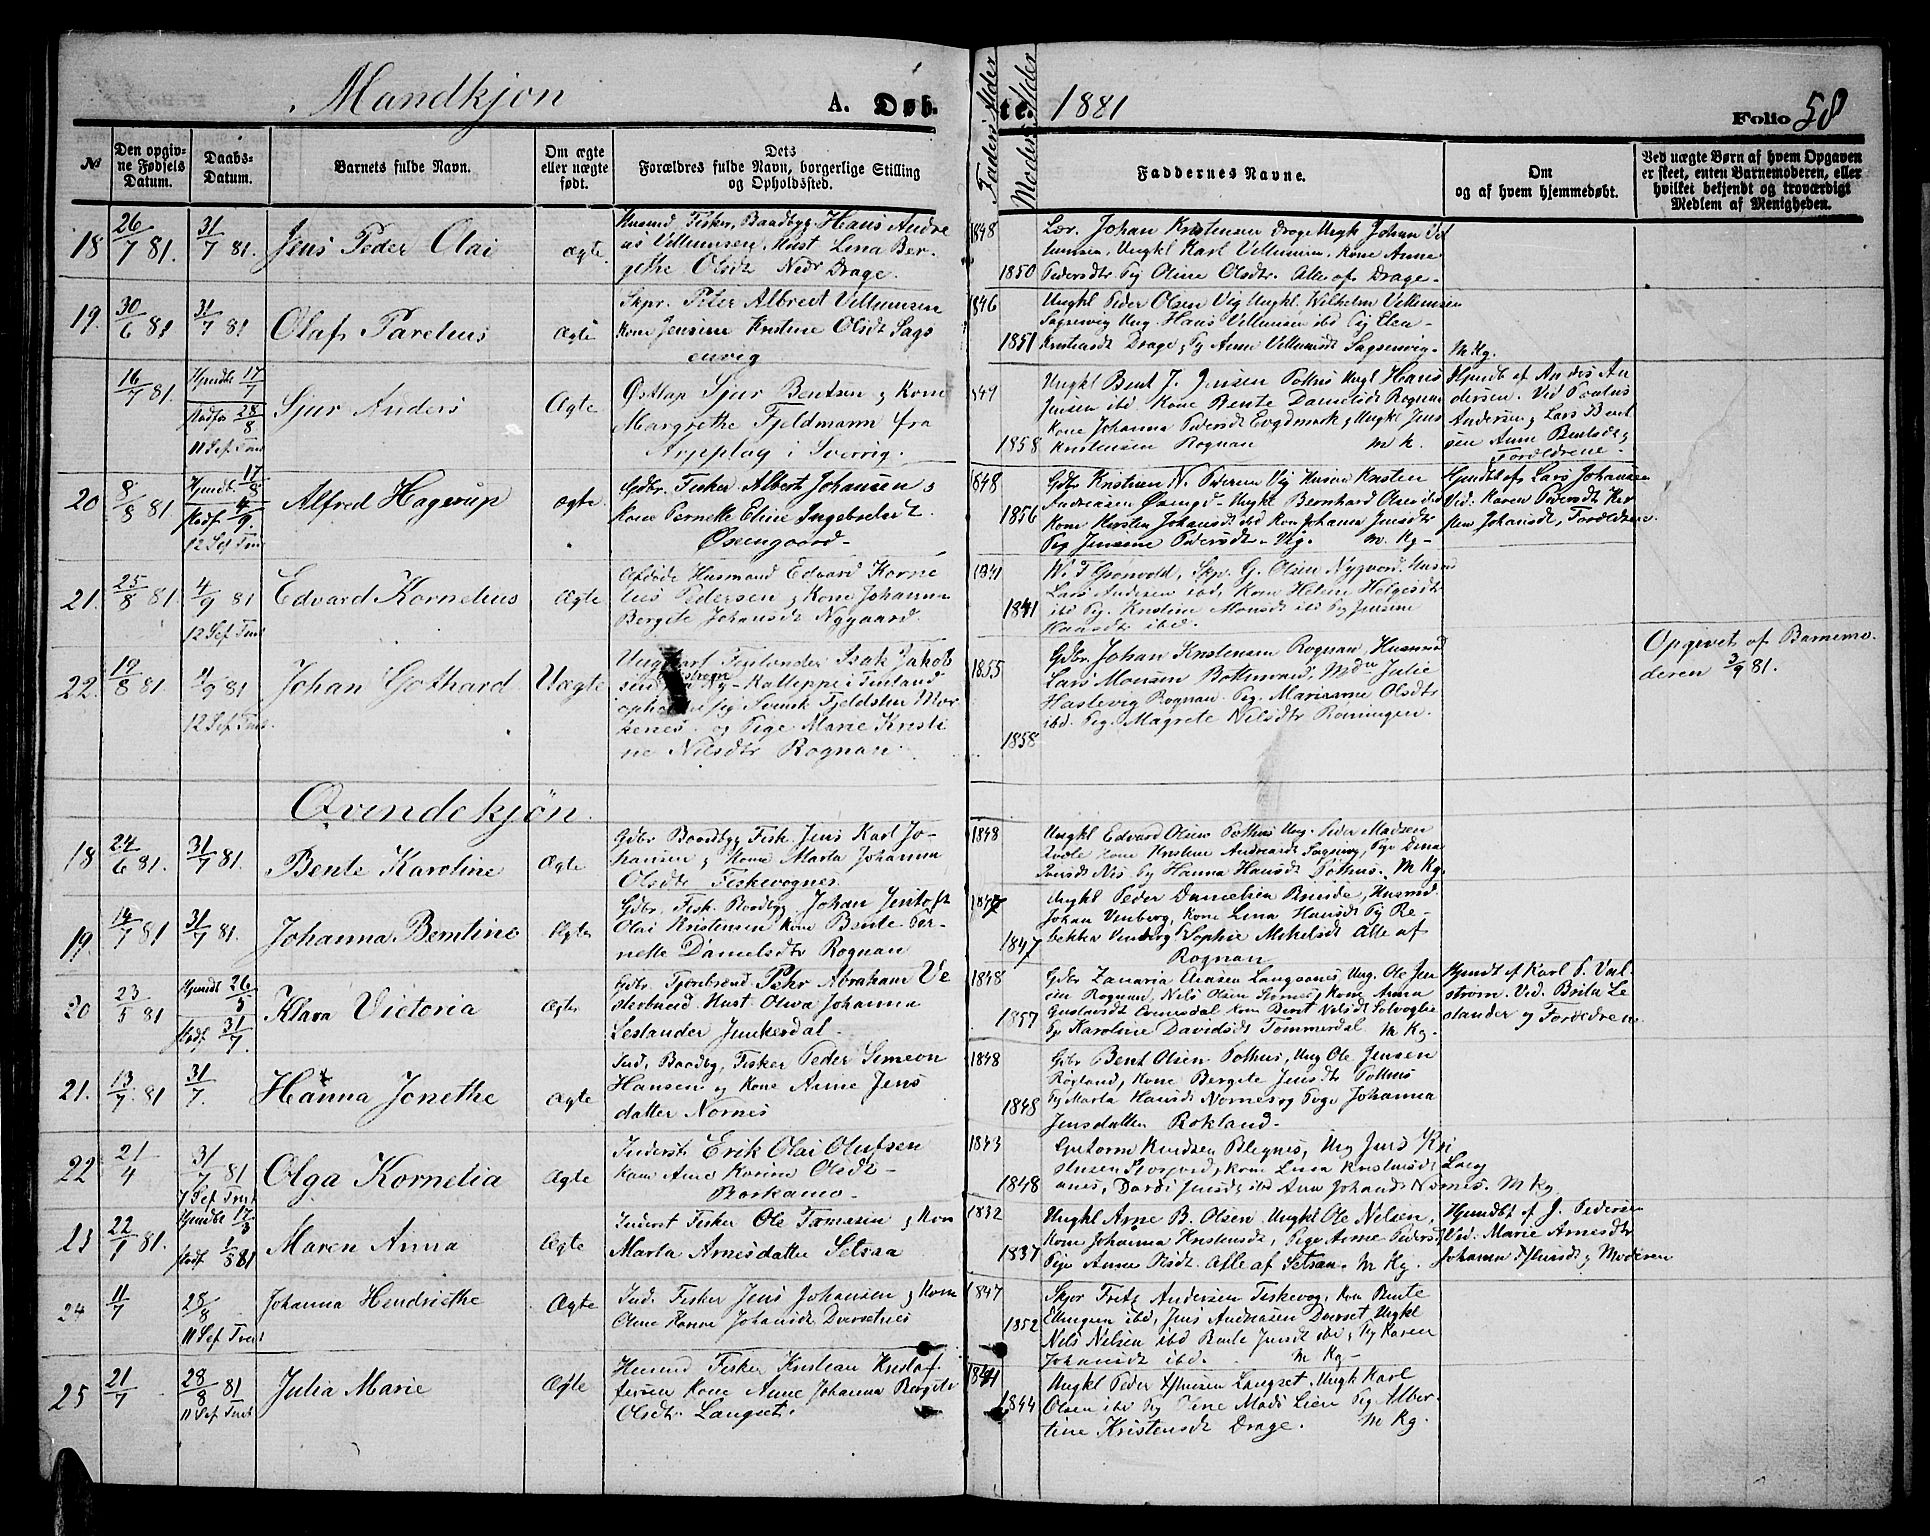 Mandkjøn A. Døb- te. 1881 Folio 58
No
Den opgivne Fødsels Datum.
Daabs-Datum.
Barnets fulde Navn.
Om ægte eller uægte født.
Dets Forældres fulde Navn, borgerlige Stilling og Opholdsted.
Faders Alder
Moders Alder
Faddernes Navne.
Om og af hvem hjemmedøbt.
Ved uægte Børn af hvem Opgaven er skeet, enten Barnemoderen, eller hvilket bekjendt og troværdigt Medlem af Menigheden.
18 26/7 81. 31/7 81. Jens Peder Olai ægte.
Husmd Fisker, Baadbyg Hans Andre
as Vellumsen, Hust Lina Ber-
gethe Olsdt Nedr Drage.
1848
1850
Lær. Johan Kristensen Drage Ungk Johan Vel
lumsen, Ungkl Karl Vellumsen, Kone Anne
Pedersdtr Pig Oline Olsdtr. Alle af Drage
19. 30/6 81 31/7 81 Olaf Parelius Ægte
Skpr. Peter Albret Vellumsen
Kone Jensine Kristine Olsdt Sags
envig
1846
1851
Ungkl Peder Olsen Vig Ungkl. Wilhelm Vellumsen
Sagsenvig Ung Hans Vellumsen ibd Pig Elen
Kristiansdt Drage, Pg Anne Vellumsdt Sagsenvig. M Kg.
16/7 81. Hjmdbt 17/7
Stadf 28/8
11 Sef. Trin Sjur Anders Ægte
Østlap Sjur Bentsen og Kone
Margrethe Fjeldmann fra
Arpplog i Sverrig.
1858
Ungkl Bent J. Jensen Pothus Ungl Hans
Jensen ibd Kone Bente Danielsdt Rognan
Kone Johanna Pedersdt Evgdmark, Ungkl Jens
Kristensen Rognan M K.
Hjmdbt af Anders An
dersen. Vid Paulus
Andersen og Lars Bent
sen Anne Bentsdt og
Forældrene
20 8/8 81 Hjmdbt. 17/8
Stadf. 4/9.
12 Sef Trin Alfred Hagerup Ægte
Gdbr. Fisker Albert Johansen og
Kone Pernelle Eline Ingebrelsdt.
Øxengaard
1848
1856
Gdbr Kristian N. Pedersen Vig Husm Kristen
Andreassen Øxengd Ungkl Bernhard Olsen ibd
Kone Kirsten Johansdt ibd Kon Johanna Jensdtr
Pig Jensine Pedersdtr. Vig. M. Kg.
Hjmdbt af Lars Johansen
Vid. Karen Pedersdt Kir
sten Johansdt, Forældrene.
21. 25/8 81. 4/9 81
12 Sef Trin Edvard Kornelius Ægte
Afdøde Husmand Edvard Korne
lius Pedersen og Kone Johanna
Bergite Johansdt Nygaard.
1841
1841
W. F Grønvold, Skp. G. Olsen Nygaard. Husmd
Lars Andersen ibd, Kone Helene Helgesdtr
ibd Pig. Kristine Monsdt ibd Pg Jensine
Hansdtr ibd.
22. 19/8 81 4/9 81
12 Sef Trin Johan Gothard Uægte
Ungkarl Isak Jakob
sen Ny-Kalleppe i Finland
Svensk Fjeldsten
og Pige Marie Kristi
ne Nilsdtr Rognan.
1855
1858
Gdbr. Johan Kristensen Rognan Husmd
Lars Monsen Bothnvand, Julie
Haslevig Rognan. Pig. Marianne Olsdtr
ibd. Pig Magrete Nilsdtr Røiningen.
Opgivet af Barnemo
deren 3/9 81.
Qvindekjøn.
18 24/6 81. 31/7 81. Bente Karoline Ægte
Gdbr Baadbyg Fisk. Jens Karl Jo-
hansen og Kone Marta Johanna
Olsdtr Fiskevognes
1848
Ungkl Edvard Olsen Pothus Ung. Peder Madsen
Kone Kristine Andreasdt Sagsvig, Pige Dina
Nis Pg Hanna Hansdt Pothus. M Kg.
19. 14/7 81 31/7 81. Johanna Berntine Ægte
Gdbr. Fisk. Baadbyg Johan Jentoft
Olai Kristensen Kone Bente Per-
nelle Danielsdtr Rognan
1847
1847
Ungkl Peder Danielsen, Husmd
Johan Venberg, Kone Lina Hansdt Pg Re-
bekka Venberg Sophie Mikelsdt Alle af
Rognan
20 23/5 81 Hjmdt 26/5
Stadf 31/7. Klara Victoria Ægte
Gdbr Peter Abraham Ve
sterlund Hust Olava Johanna
Leslander Junkerdal.
1848
1857
Gdbr Zakaria Eliasen Langaanes, Ung. Ole Jen
sen Rognan, Nils Olsen Stornes, Kone Anna
Gustavsdt Kone Berit Nilsdt Solvaglie
Pg Karoline Davidsdt Tømmerdal M Kg.
Hjmdt af Karl P. Val
strøm. Vid. Brita Le
slander og Forældrene
21. 13/7. 81 31/7. Hanna Jonethe Ægte
Ind, Baadby, Fisker Peder Simeon
Hansen og Kone Anne Jens
datter Nornes
1848
1848
Gdbr Bent Olsen Pothus, Ung Ole Jensen
Røgland, Kone Bergete Jensdtr Pothus
Pg Marta Hansdt Nornes og Pige Johanna
Jensdatter Rokland.
22 21/4 31/7 81
7 Sef Trin Olga Kornelia Ægte
Inderst Erik Olai Olufsen
Kone Anne Karine Olsdt
Borkamo
1843
1848
Gutorm Knudsen Blegnes, Ung Jens Kri
stensen Storjord, Kone Lina Kristensdt Lang
anes, Jensdt ibd Ann Johansdt Nornes. M Kg
23 22/1 81. Hjmdbt 17/3
Stadf 1/8 81 Maren Anna Ægte
Inderst Fisker Ole Tomasen og Kone
Marta Arnesdatter Setsaa
1832
1837
Ungkl Arne B. Olsen, Ungkl Ole Nelsen,
Kone Johanna Kristensdt, Pige Anne Pedersdt
Pige Anne Alle af Setsaa. M Kg.
Hjmdbt af J. Pedersen
Vid. Marie Arnesdtr
Johanna og Moderen
24 11/7 28/8
11 Sef Trin Johanna Hendriethe Ægte
Ind. Fisker Jens Johansen og Kone
Oline Hanna Johansdt Dverset
1847
1852
Skpr Fritz Andersen Fiskevog, Kon Bente
Ellingsen ibd, Jens Andreassen Dverset Ungkl
Nels Nelsen ibd Bente Jensdt ibd, Pg Karen
Johansdt ibd. M Kg
25 21/7 28/8 81
11 Sef Trin Julia Marie Ægte
Husmd Fisker Kristian Kristof
fersen Kone Anne Johanna Bergite
Olsdt. Langset.
1841
1844
Ungkl Peder Langset. Ungk Karl
Olsen ibd Pig Line Mads Lien Pig Alber
tine Kristensdt Drage. M Kg.